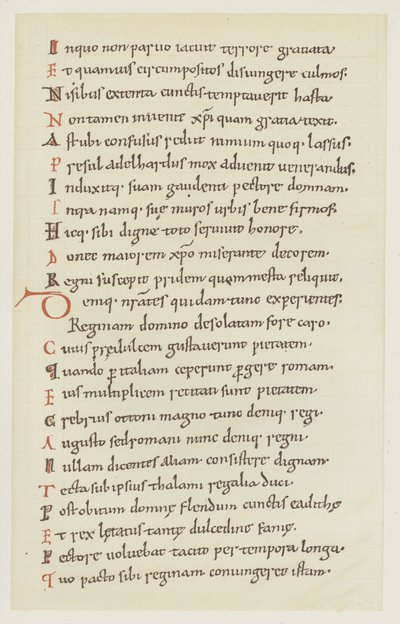 Inquo non paruo iacuit terrore grauata
Et quamuis circumpositos disiungere culmos.
Nisibus extenta cunctis temptauerit hasta
Nontamen inuenit xp̄i quam gratia texit.
Astubi confusus rediit nimium quoq· lassus.
Presul adelhardus mox aduenit uenerandus.
Induxitq· suam gaudenti pectore domnam.
Intra namq· suę muros urbis bene firmos.
Hicq· sibi digne toto seruiuit honore.
Donec maiorem xp̄o miserante decorem.
Regni suscepit pridem quam mesta reliquit.
Deniq· nr̄ates quidam tunc experientes.
Reginam domino desolatam fore caro.
Cuius prędulcem gustauerunt pietatem.
Quando ꝑ italiam ceperunt ꝑgere romam.
Eius multiplicem recitati sunt pietatem.
Crebrius ottoni magno tunc deniq· regi.
Augusto sed romani nunc deniq· regni.
Nullam dicentes aliam consistere dignam.
Tecta sub ipsius thalami regalia duci.
Post obitum domnę flendum cunctis eadithę
Et rex lętatus tantę dulcedine famę.
Pectore uoluebat tacito per tempora longa.
Quo pacto sibi reginam coniungeret istam.